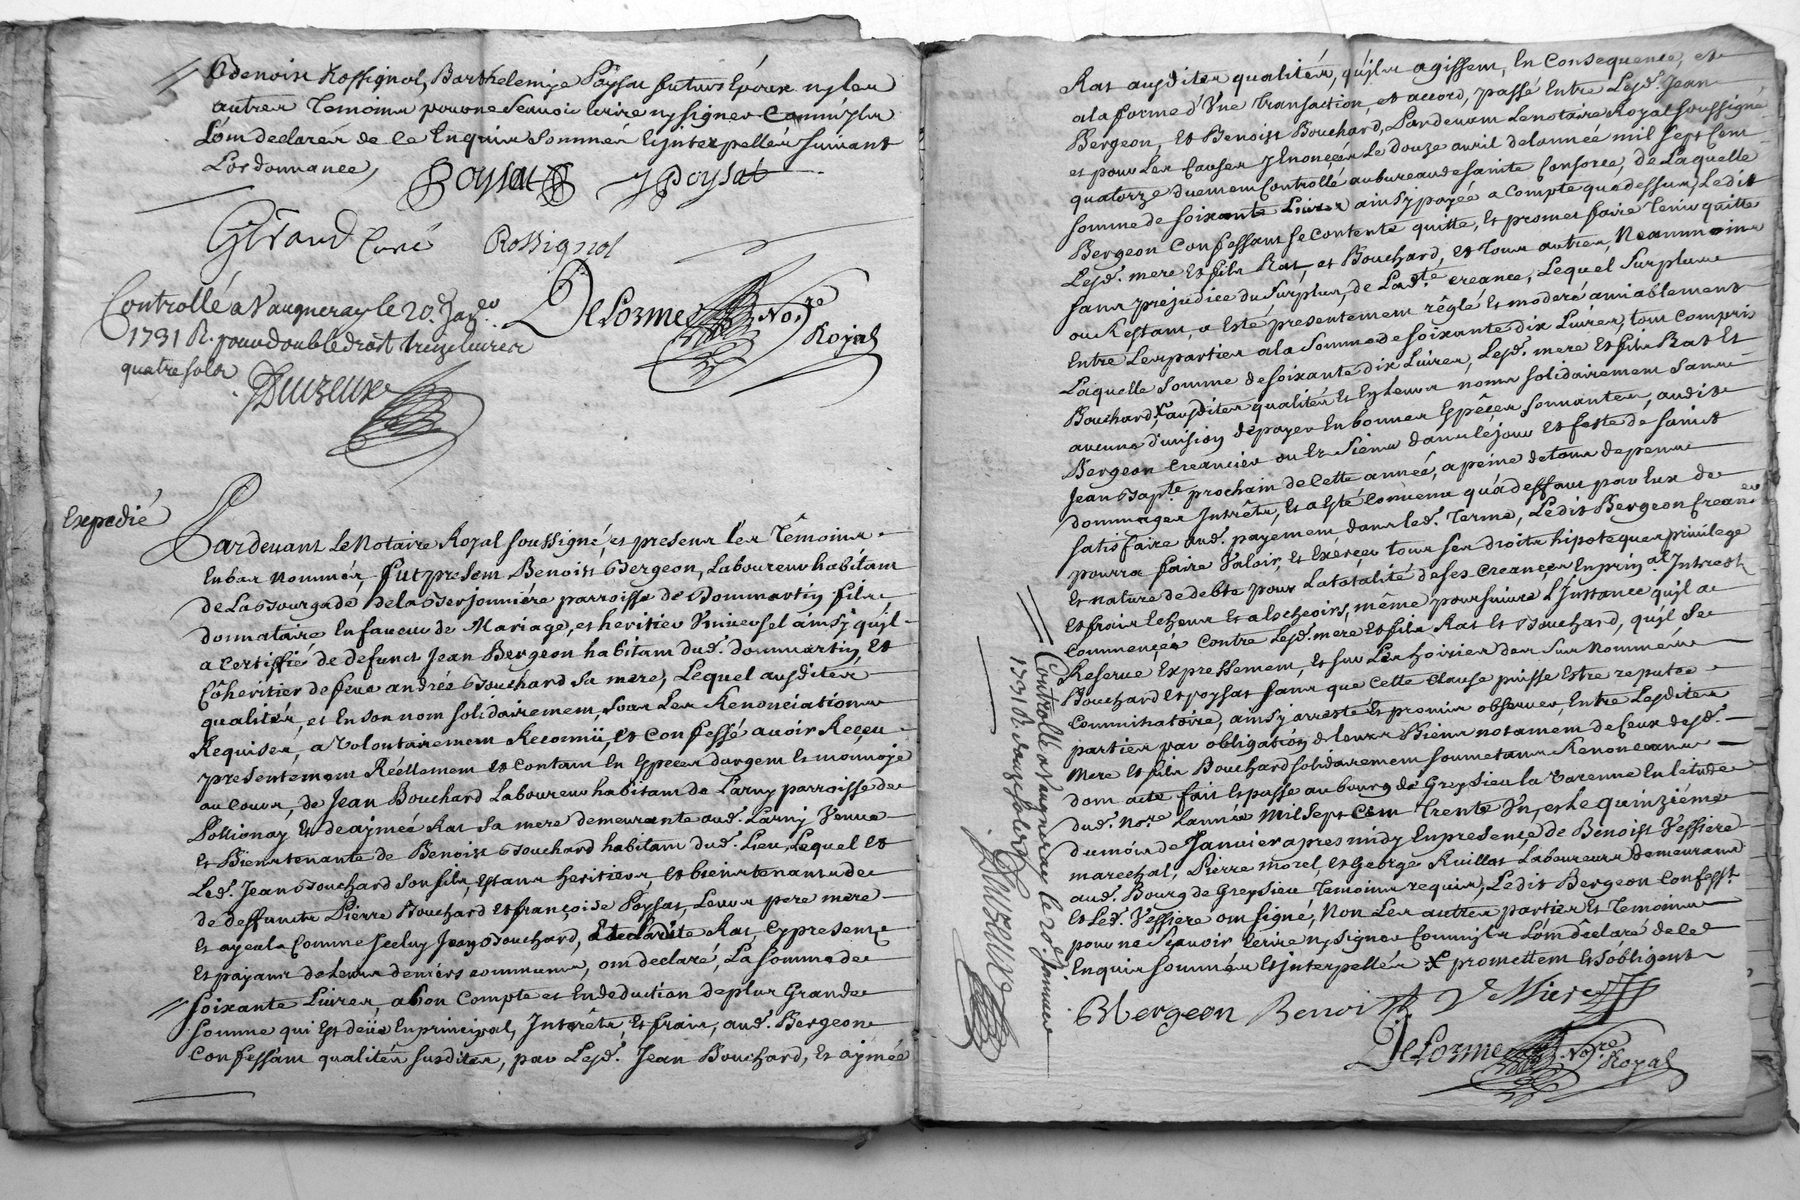 Benoist Rossignol, Barthelemye Poysat futurs Epoux ny les
autres temoins pour ne scavoir ecrire ny signer comm'ils
l'ont declarés de ce Enquis sommés Et interpellés suivant
L'ordonnance,
Poysat J Poysat
Géraud Curé Rossignol
Controllé a Vaugneray le 20e. Janer.
1731 R. pour double droit treize livres
quatre sols
Duizeux
Delorme Nore.
Royal
Expedié
Pardevant Le Notaire Royal soussigné, et presens les Témoins
En bas nommés, fut present Benoist Bergeon, Laboureur habitant
de La Bourgade de la Berjonniére parroisse de Dommartin fils
donnataire En faveur de Mariage, et heritier Universel ainsy qu'il
a certiffié de defunct Jean Bergeon habitant dud. dommartin, Et
Côheritier de feue andrée Bouchard sa mere, Lequel ausdites
qualités, et En son nom solidairement, sous Les Renonciations
Requises, a Volontairement Reconnü, Et Confessé avoir Reçeu
presentement Réellement Et Contant En Especes d'argent Et monnoye
au cours, de Jean Bouchard Laboureur habitant de Larny parroisse de
Pollionay Et de aymée Rat sa mere demeurante aud. Larny Veuve
Et Bientenante de Benoist Bouchard habitant dud. Lieu, Lequel Et
Led. Jean Bouchard son fils, Estans heritiers, Et bientenants de
de deffuncts Pierre Bouchard Et françoise Poysat, Leurs pere mere
Et ayeuls Comme icelluy Jean Bouchard, Et ladite Rat Cy presents
Et payans de Leurs deniers communs, ont declaré, La somme de
soixante Livres, a bon Compte et En deduction de plus Grande
somme qui Est deüe En principal, Intérêts, Et frais, aud. Bergeon
Confessant qualités susdites, par Lesd. Jean Bouchard, Et aymée
Rat ausdites qualités, qu'ils agissent, En Consequence, et
a la forme d'Une Transaction, et accord, passé Entre Lesd. Jean
Bergeon, Et Benoist Bouchard, Pardevant Le notaire Royal soussigné
et pour Les Causes y Enoncées Le douze avril de l'année mil sept cent
quatorze duement Controllé au bureau de sainte Consorce, de Laquelle
somme de soixante Livres ainsy payée a Compte que dessus, Ledit
Bergeon Confessant se Contente quitte, Et promet faire tenir quitte
Lesd. mere Et fils Rat, et Bouchard, Et tous autres, Neammoins
sans prejudice du surplus, de Lad.te creance, Lequel surplus
ou Restant, a Esté presentement réglé Et moderé amiablement
Entre Les parties a la Somme de soixante dix Livres, tout compris
Laquelle somme de soixante dix Livres, Lesd. mere Et fils Rat Et
Bouchard, ausdites qualités Et En Leurs noms solidairement sans
aucune division de payer En bonnes Espéces sonnantes, audit
Bergeon Creancier ou Es Siens dans le jour Et feste de saint
Jean Bap.te prochain de Cette année, a peine de tous depens
dommages Intréts, Et a Esté Convenu qu'a deffaut par Eux de
satisfaire aud. payement dans led. terme, Ledit Bergeon Creaner
pourra faire Valoir, Et Exércer tous ses droits hipoteques privilege
Et nature de debte pour La totalité de ses Creances En prin.al Intrests
Et frais Echeus Et a Escheoirs, même poursuivre L'Instance qu'il a
Commencée Contre Lesd. mere Et fils Rat Et Bouchard, qu'il se
Reserve Expressement, Et sur Les hoiries des sus nommés
Bouchard Et poysat sans que Cette Clause puisse Estre reputée
Comminatoire, ainsy arresté Et promis observer, Entre Lesdites
parties par obligation de leurs Biens notament de Ceux desd.
Mere Et fils Bouchard solidairement soumetans Renonceans
dont acte fait Et passé au bourg de Greysieu la Varenne En L'etude
dud. Nore. L'année Mil Sept Cent trente Un, et Le quinziéme
du mois de Janvier apres midy En presence de Benoist Vessiere
marechal, Pierre morel, et George Ruillat Laboureurs demeurans
aud. Bourg de Greysieu Temoins requis, Ledit Bergeon Confess.t
Et Led. Vessiere ont signé, Non Les autres parties Et Temoins
pour ne Scavoir Ecrire ny Signer Comm'ils L'ont declaré de ce
Enquis sommés Et interpellés X promettent Et s'obligent
B Bergeon Benoist Vessiere
Delorme Nore.
Royal
Controllé a Vaugneray le 20e. Janvier
1731 R. douze sols
Duizeux